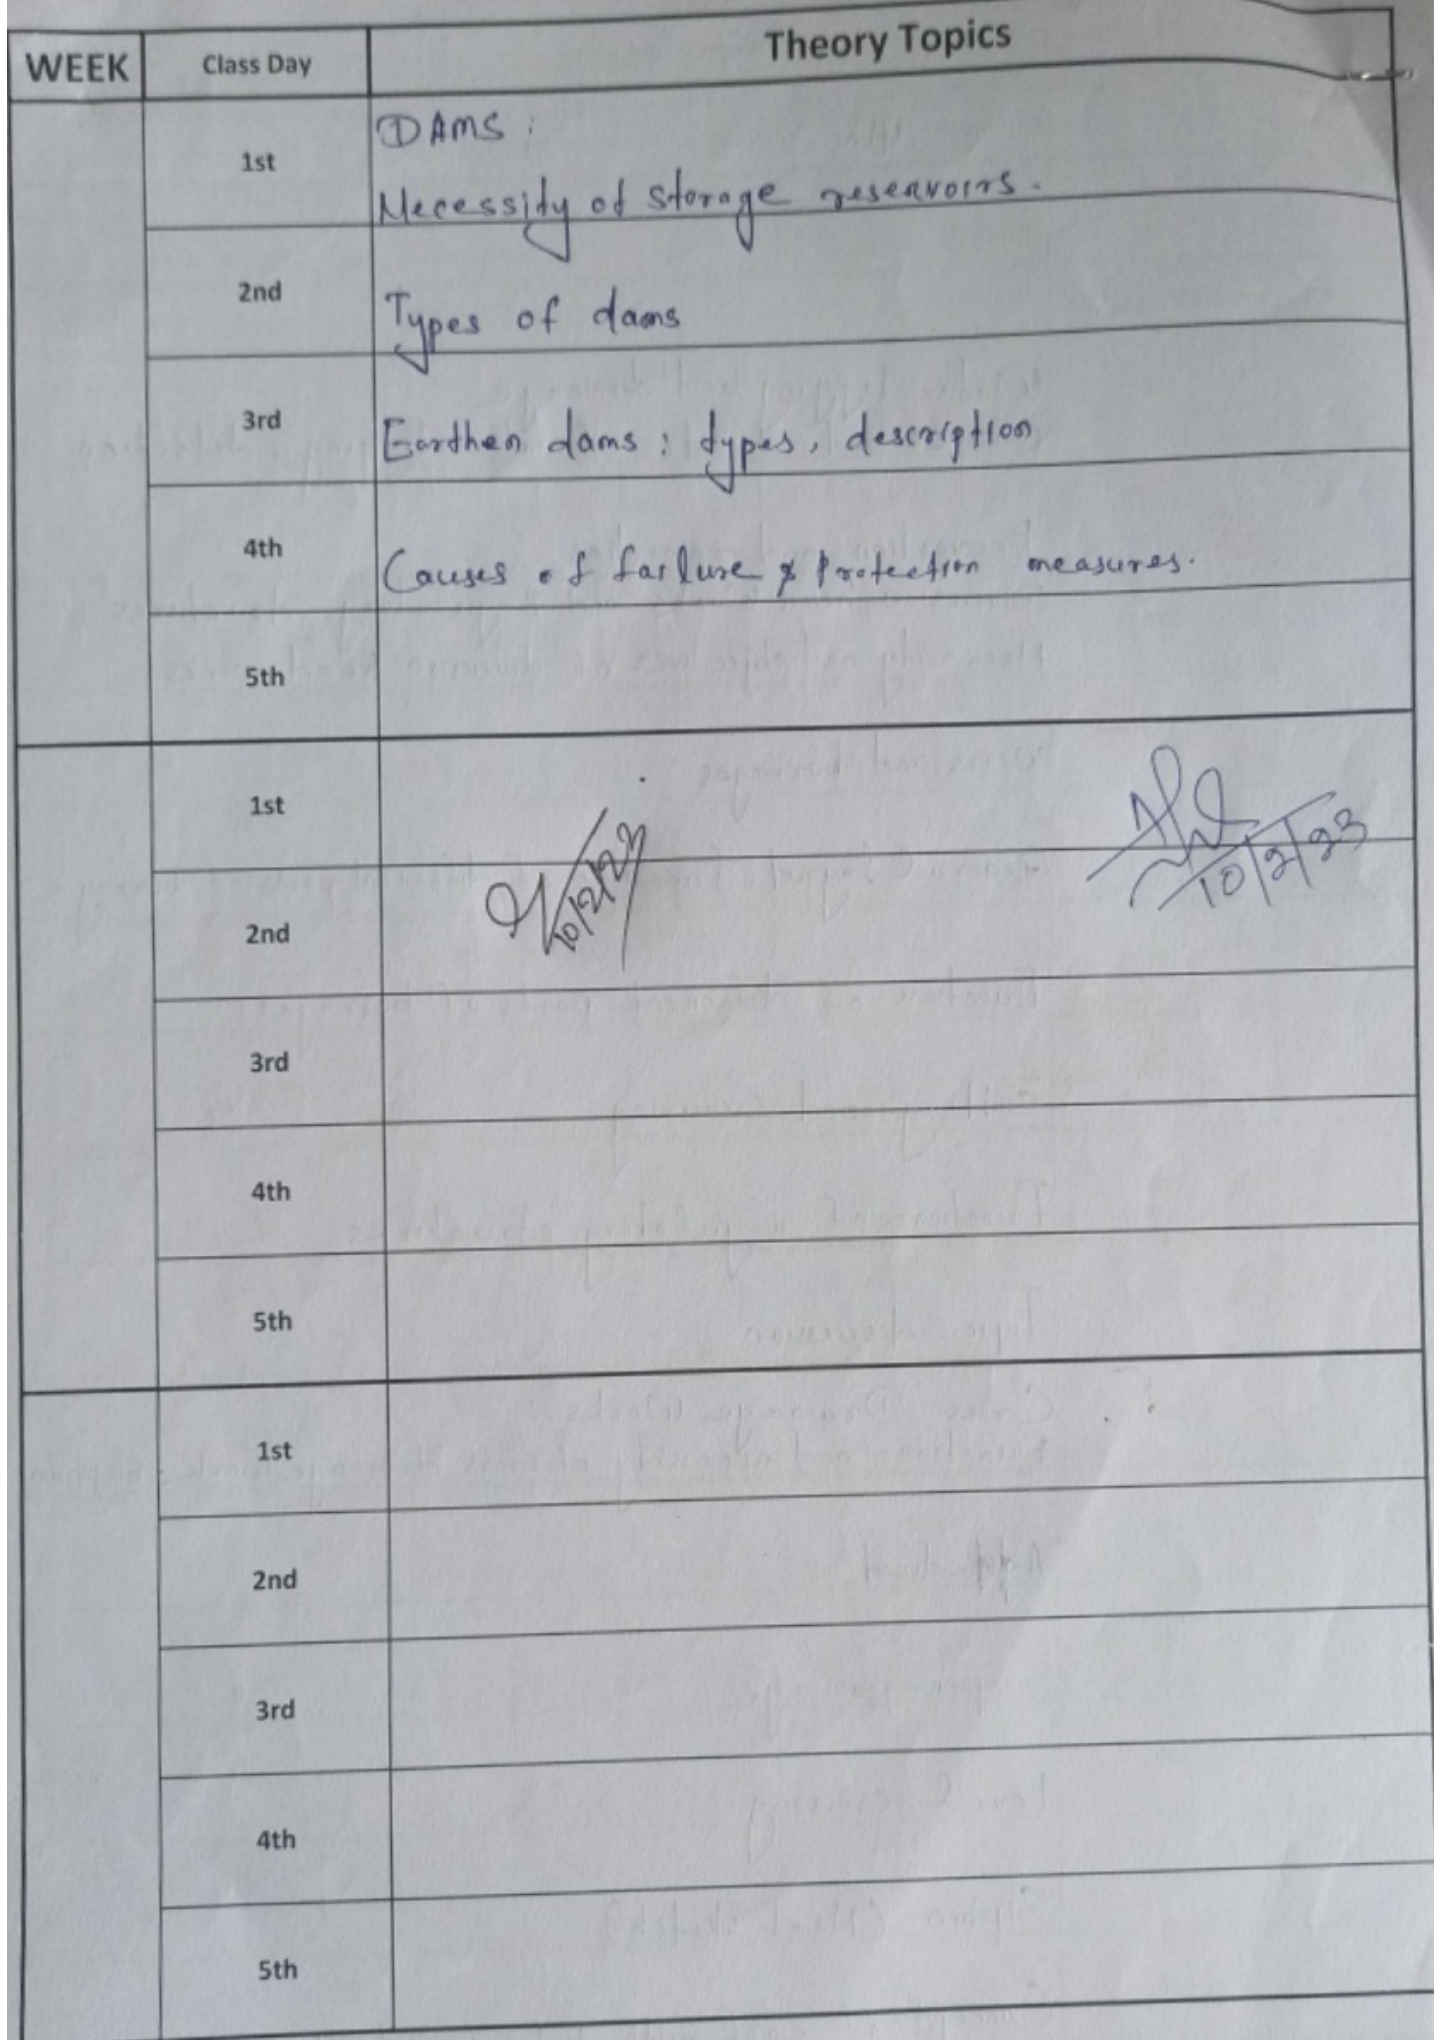 WEEK Class Day Theory Topics
1st DAMS :
Necessity of storage reservoirs.
2nd Types of dams
3rd Earthen dams : types, description
4th Causes of failure & Protection measures.
5th
1st
10/2/23 10/2/23
2nd
3rd
4th
5th
1st
2nd
3rd
4th
5th